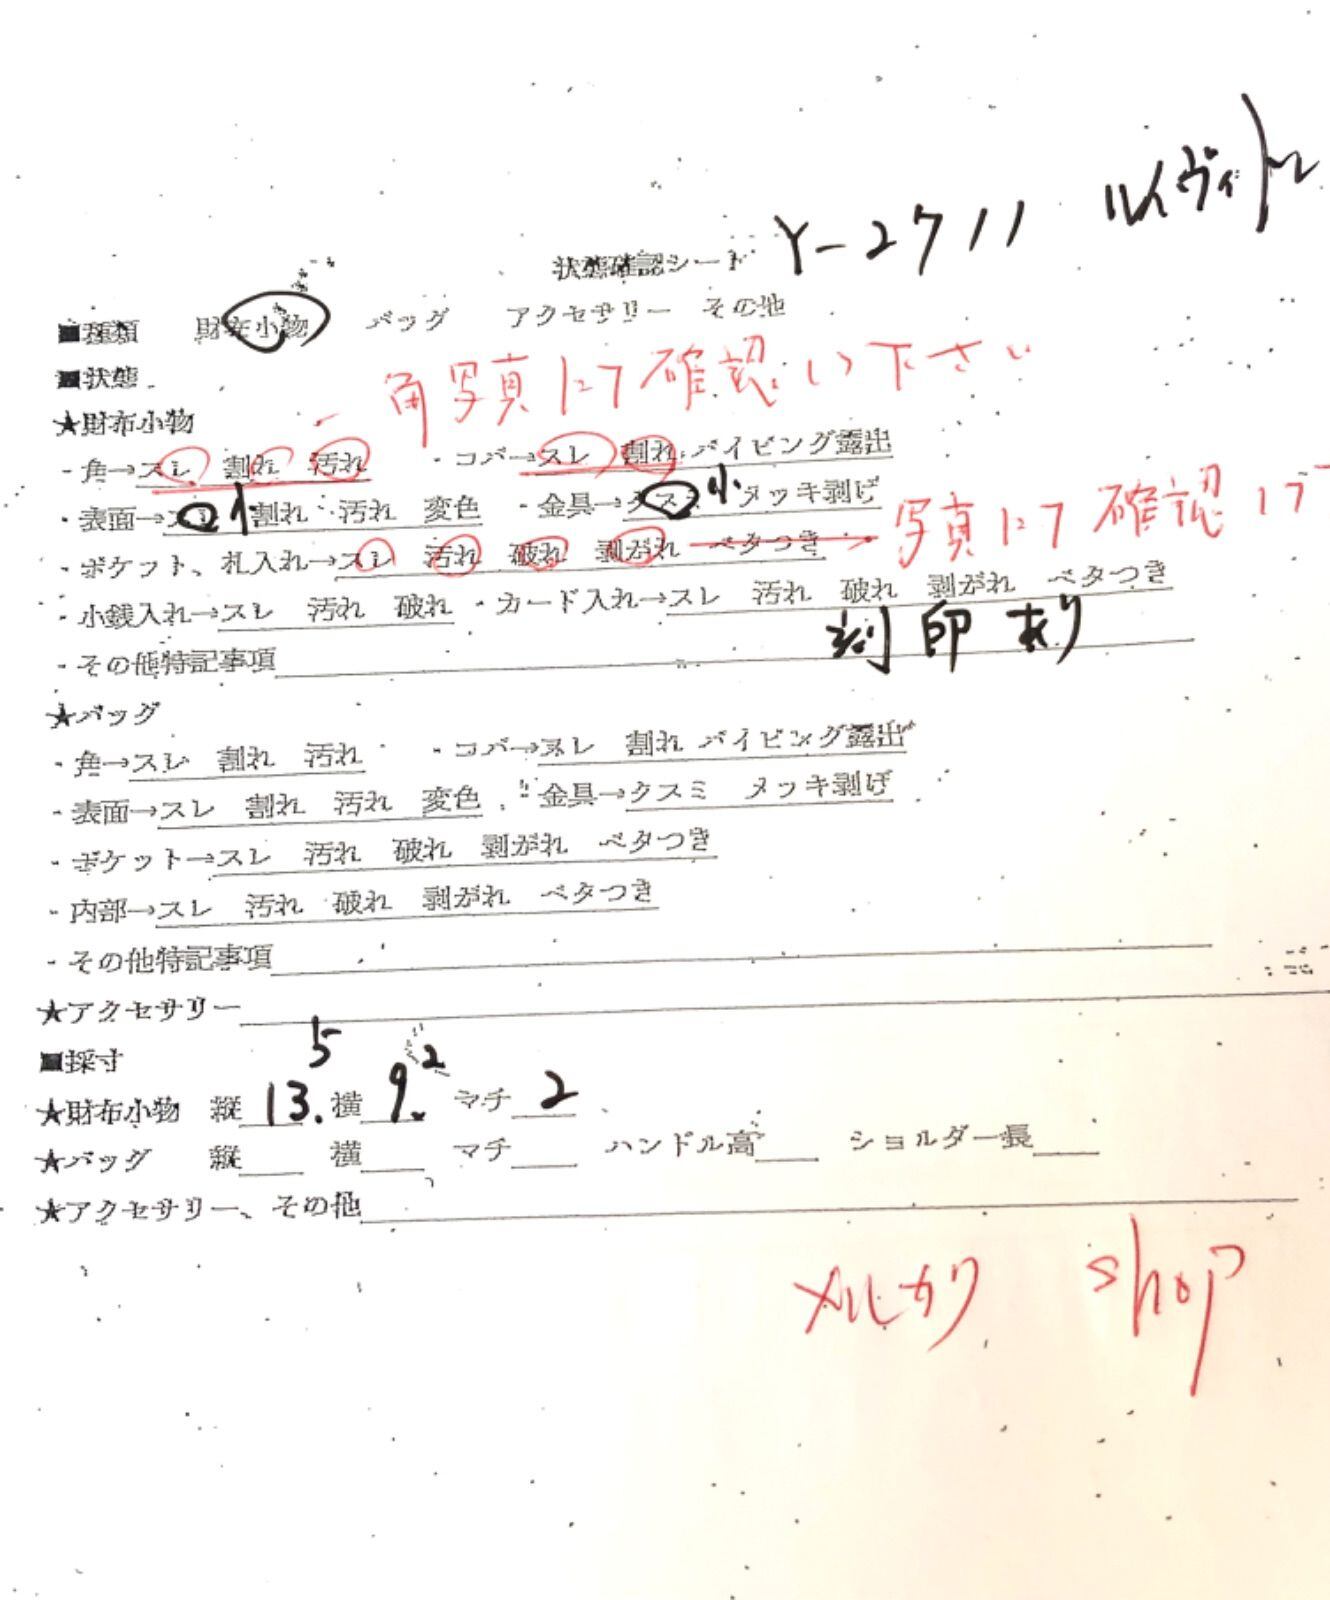 Y-2711 ルイヴィトン
状態確認シート
■種類 財布小物 バッグ アクセサリー その他
■状態
角写真にて確認い下さい
★財布小物
・角→スレ 割れ 汚れ ・コバ→スレ 割れ パイピング露出
・表面→スレ 小 割れ 汚れ 変色 ・金具→クスミ 小 メッキ剥げ
・ポケット、札入れ→スレ 汚れ 破れ 剥がれ ベタつき 写真にて確認
・小銭入れ→スレ 汚れ 破れ ・カード入れ→スレ 汚れ 破れ 剥がれ ベタつき
・その他特記事項 刻印あり
★バッグ
・角→スレ 割れ 汚れ ・コバ→スレ 割れ パイピング露出
・表面→スレ 割れ 汚れ 変色 ・金具→クスミ メッキ剥げ
・ポケット→スレ 汚れ 破れ 剥がれ ベタつき
・内部→スレ 汚れ 破れ 剥がれ ベタつき
・その他特記事項
★アクセサリー
■採寸
★財布小物 縦 13.5 横 9.2 マチ 2
★バッグ 縦 横 マチ ハンドル高 ショルダー長
★アクセサリー、その他
メルカリ shop